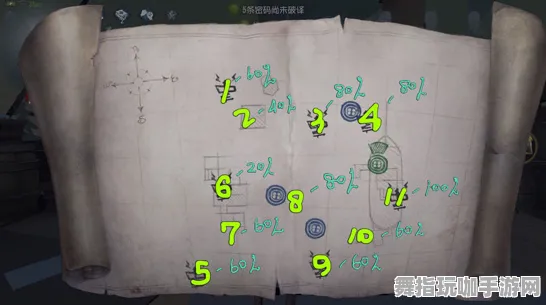 5条密码尚未破译
1 60%
2 40%
3 80%
4 80%
6 20%
8 80%
11 100%
7 60%
10 60%
5 60%
9 60%
舞指玩咖手游网